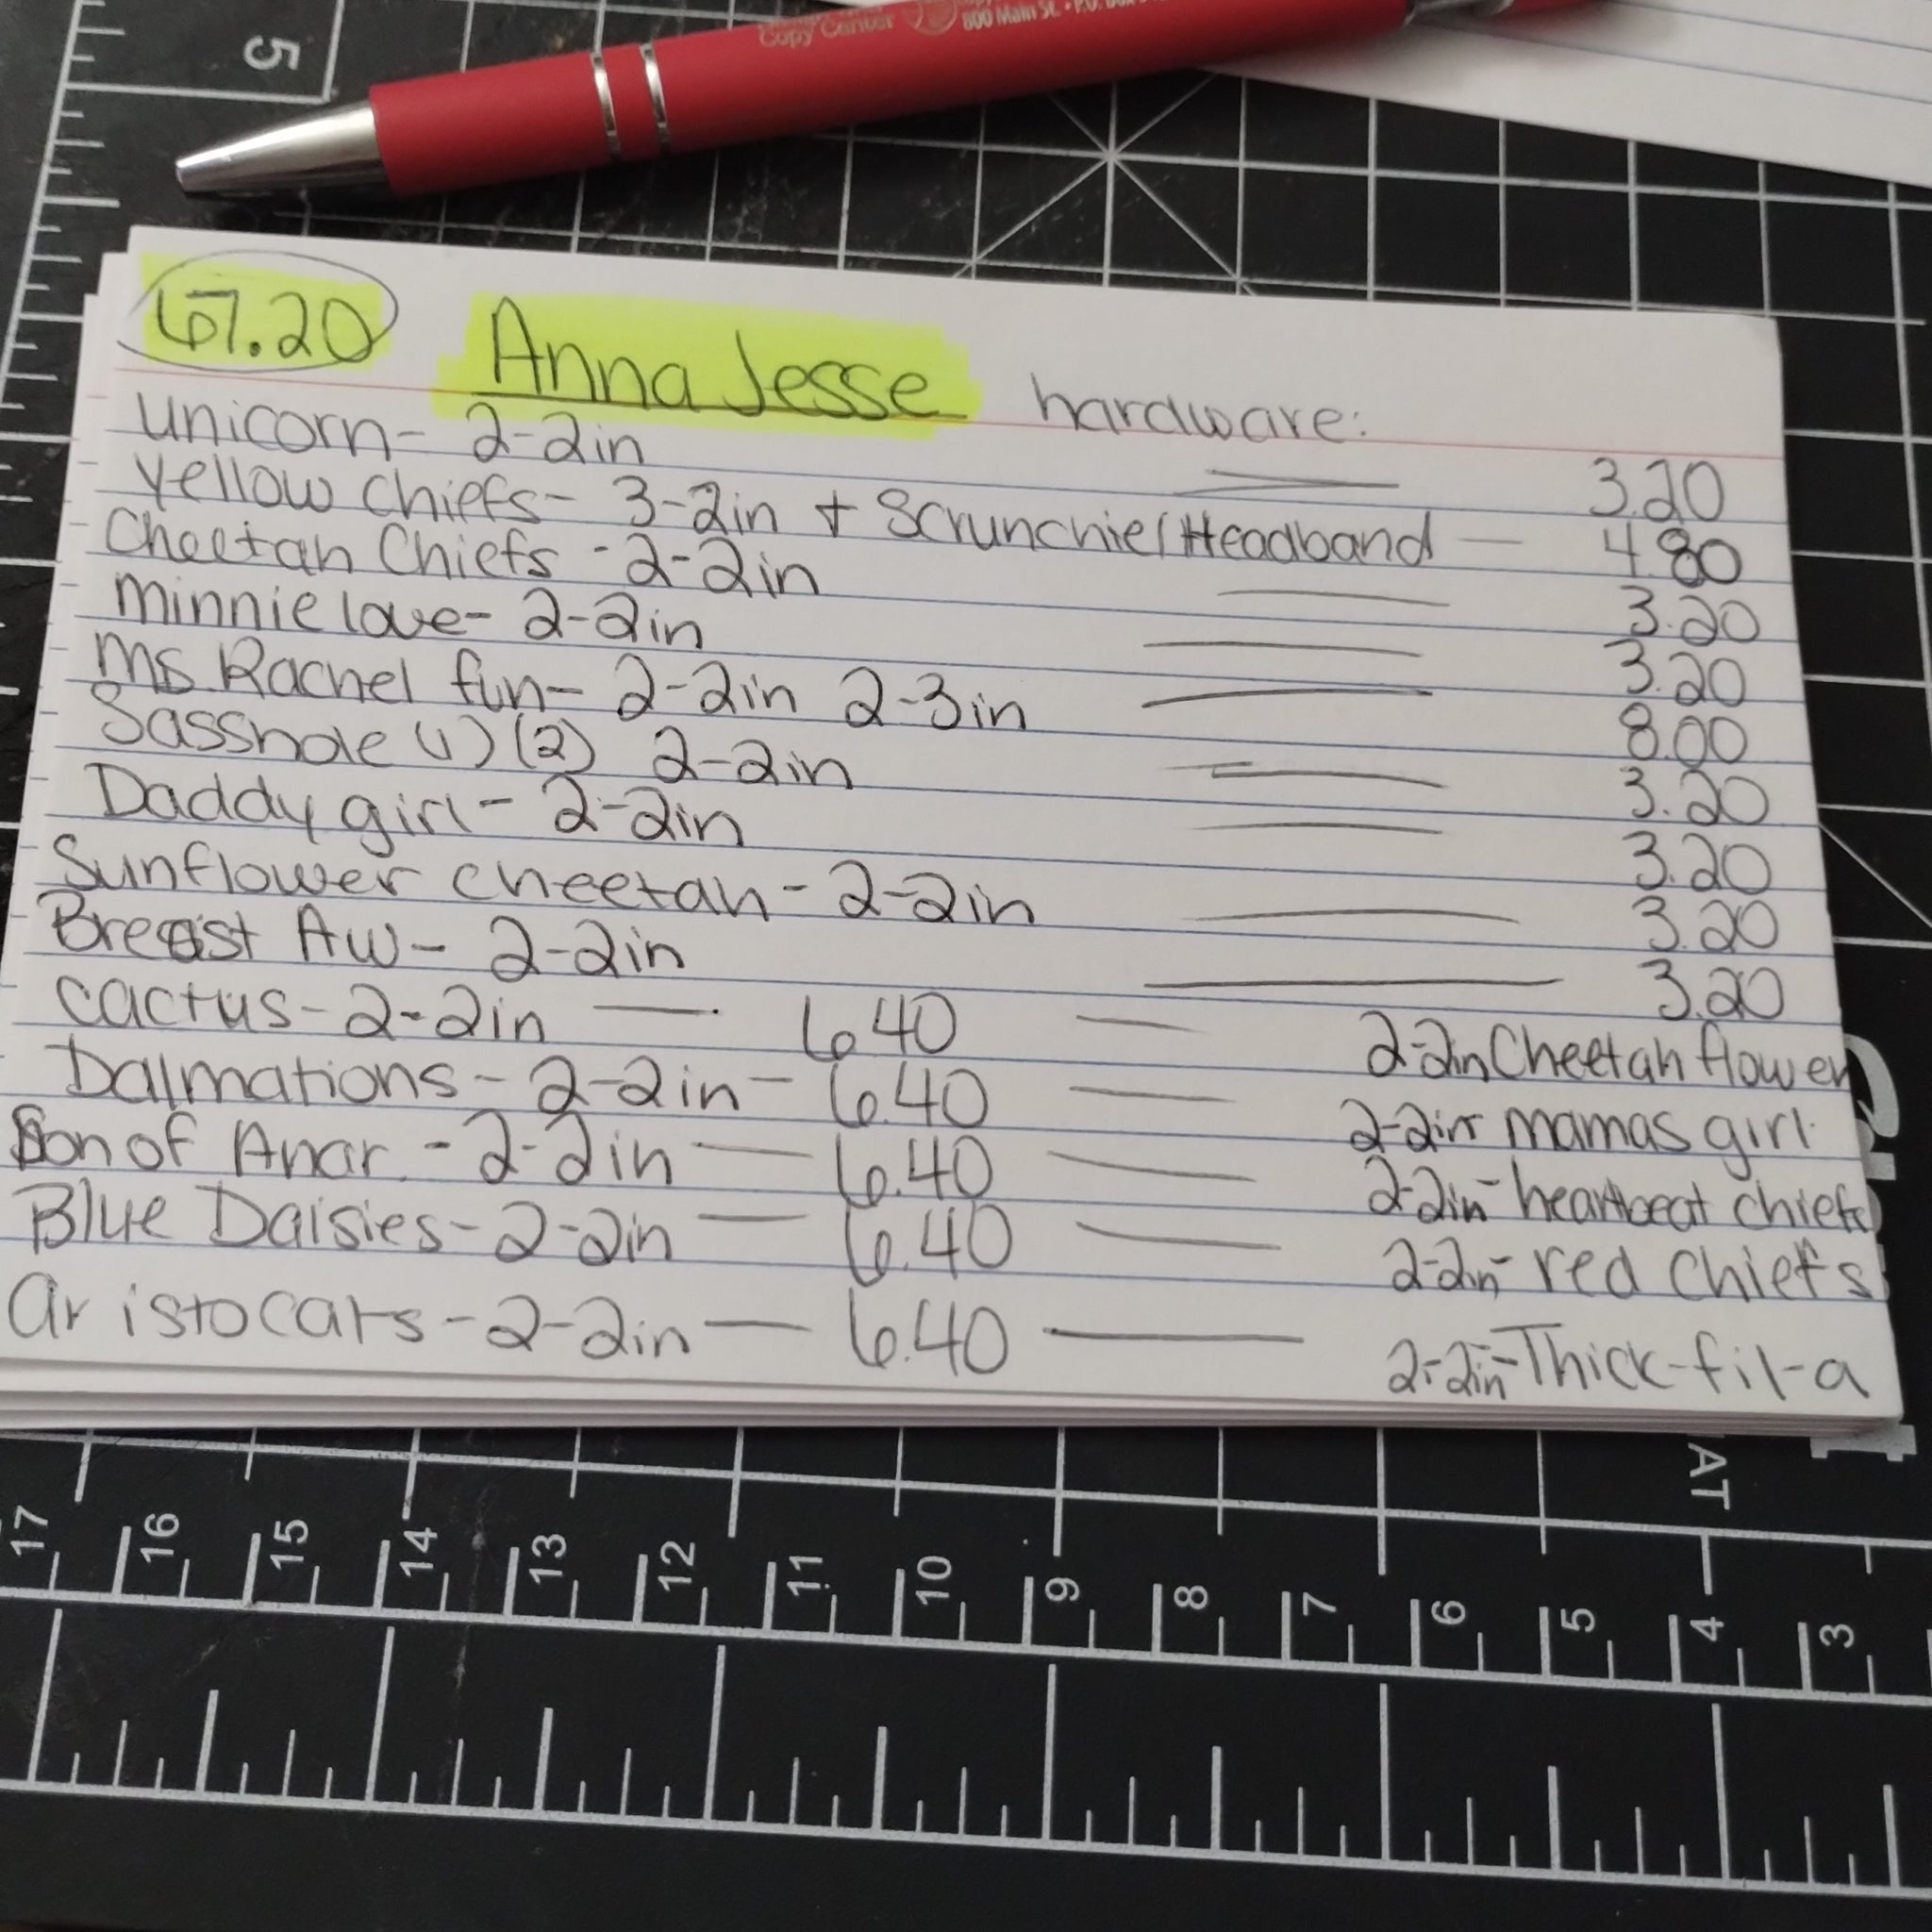 5
Copy Center 800 Main St. • P.O. Box
67.20 Anna Jesse hardware:
unicorn- 2-2in 3.20
yellow chiefs- 3-2in + Scrunchie/Headband 4.80
Cheetah Chiefs - 2-2in 3.20
minnie love- 2-2in 3.20
Ms. Rachel fun- 2-2in 2-3in 8.00
Sasshole (1) (2) 2-2in 3.20
Daddy girl- 2-2in 3.20
Sunflower cheetah - 2-2in 3.20
Breast Aw- 2-2in 3.20
cactus- 2-2in — 6.40 — 2-2in Cheetah flower
Dalmations - 2-2in - 6.40 — 2-2in mamas girl
Son of Anar. - 2-2in — 6.40 — 2-2in- heartbeat chiefs
Blue Daisies- 2-2in — 6.40 — 2-2in- red chiefs
Aristocats - 2-2in — 6.40 — 2-2in- Thick-fil-a
17 16 15 14 13 12 11 10 9 8 7 6 5 4 3